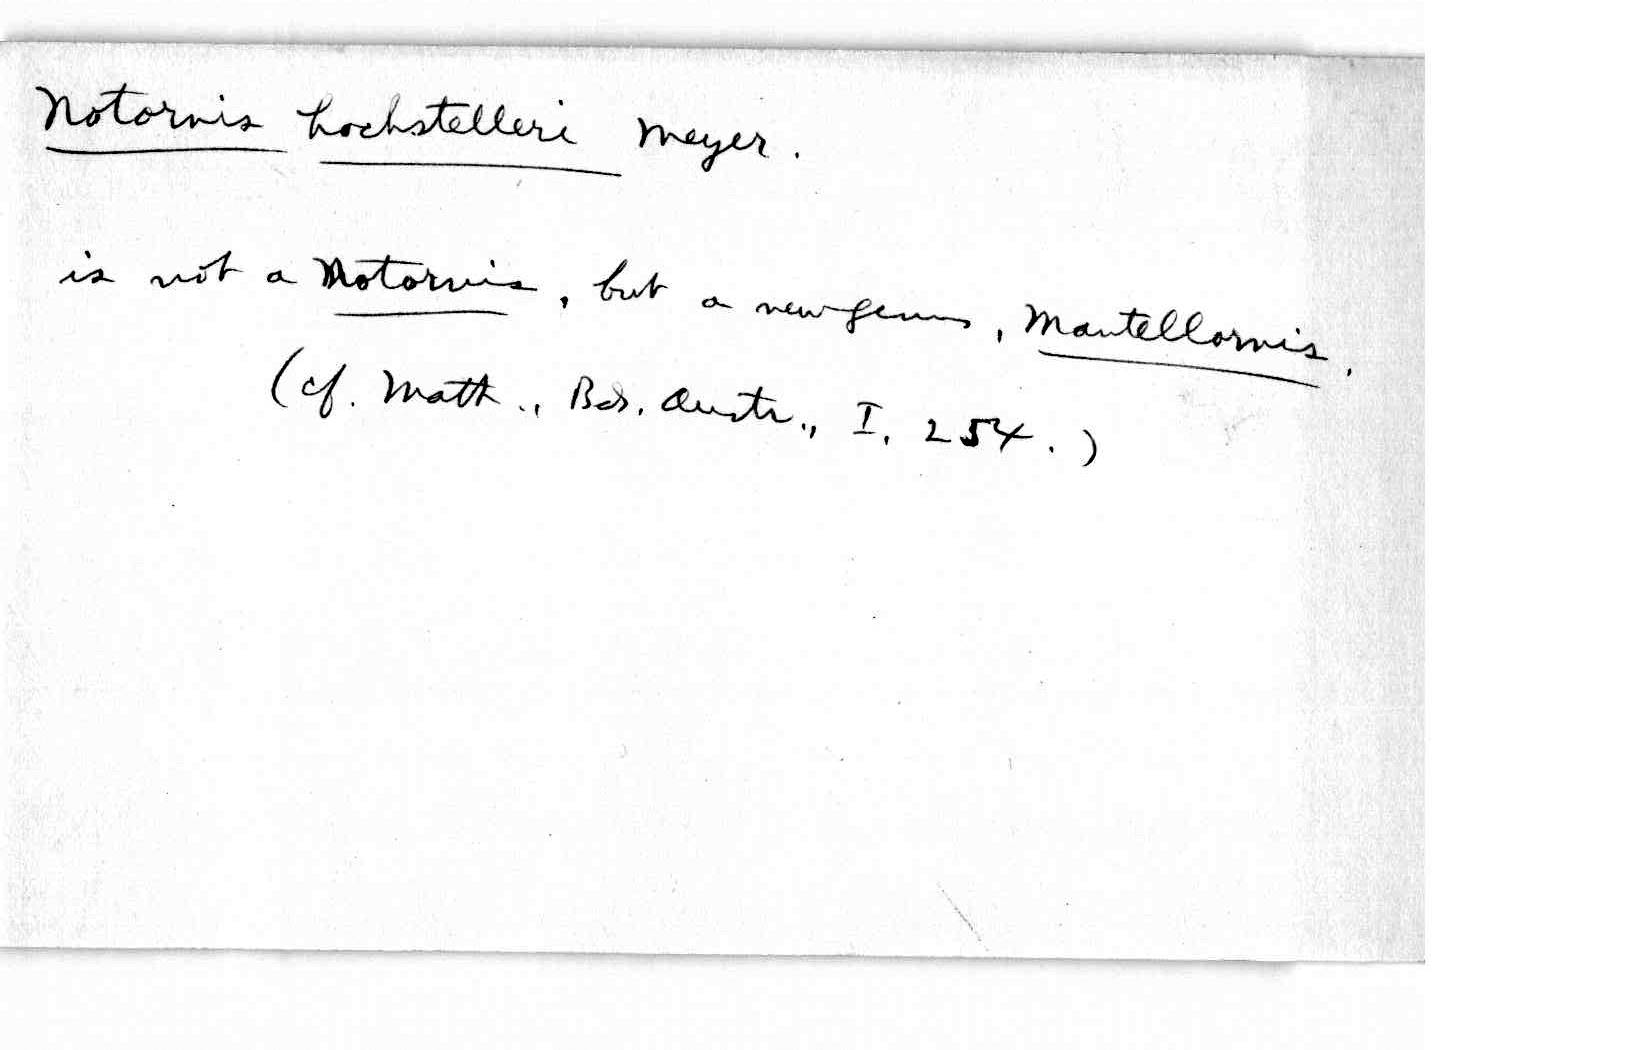 Notornis hochstelleri Meyer.
is not a Notornis, but a new genus, Mantellornis.
(cf. Math., Bds. Austr., I, 254.)